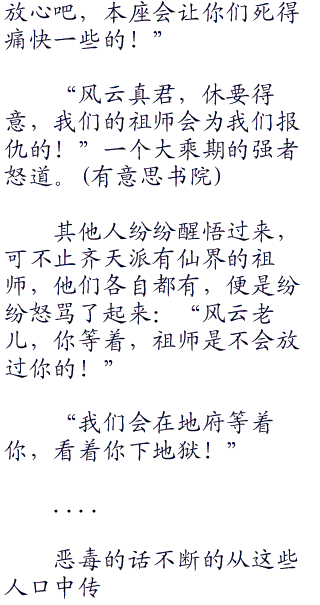 放心吧，本座会让你们死得
痛快一些的！”
“风云真君，休要得
意，我们的祖师会为我们报
仇的！”一个大乘期的强者
怒道。(有意思书院)
其他人纷纷醒悟过来，
可不止齐天派有仙界的祖
师，他们各自都有，便是纷
纷怒骂了起来：“风云老
儿，你等着，祖师是不会放
过你的！”
“我们会在地府等着
你，看着你下地狱！”
....
恶毒的话不断的从这些
人口中传